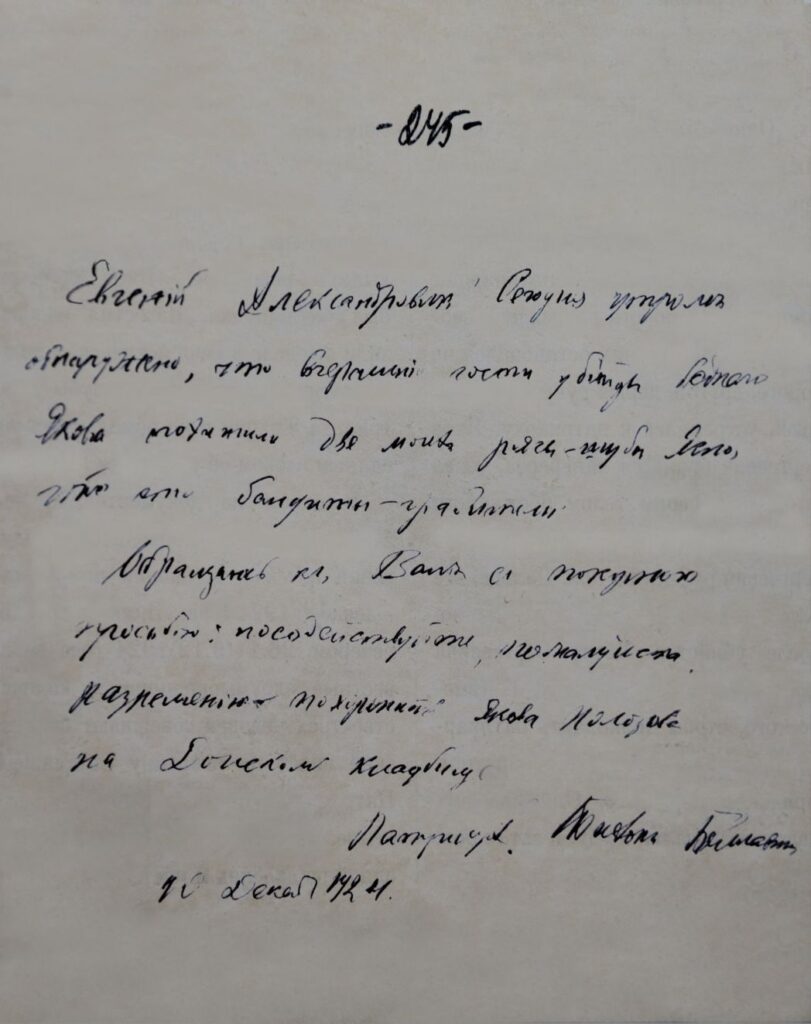 - 245 -
Евгеній Александровичъ! Сегодня утромъ
обнаружено, что вчерашніе гости убійцы бѣднаго
Якова похитили две моихъ рясы-шубы Ясно,
что это бандиты-грабители
Обращаюсь къ Вамъ съ покорною
просьбою: посодействуйте, пожалуйста,
разрешенію похоронить Якова Полозова
на Донском кладбище
Патріархъ Тихонъ
10 Декаб 1924.